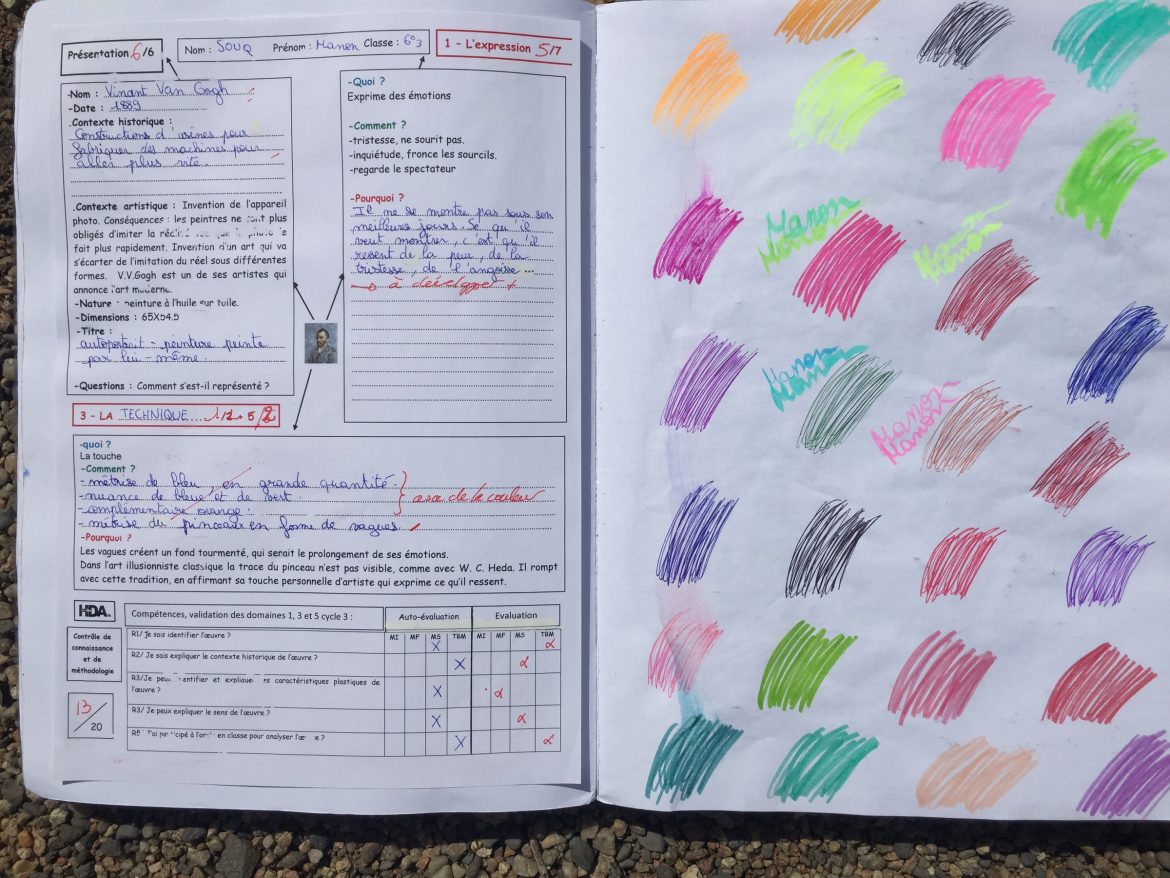 Présentation 6/6
Nom : SOUQ Prénom : Manon Classe : 6°3
1 - L'expression 5/7
-Nom : Vinant Van Gogh
-Date : 1889
.Contexte historique :
Constructions d'usines pour
fabriquer des machines pour
aller plus vite.
.Contexte artistique : Invention de l'appareil
photo. Conséquences : les peintres ne sont plus
obligés d'imiter la
fait plus rapidement. Invention d'un art qui va
s'écarter de l'imitation du réel sous différentes
formes. V.V.Gogh est un de ses artistes qui
annonce l'art moderne.
-Nature : peinture à l'huile sur toile.
-Dimensions : 65X54.5
-Titre :
autoportrait - peinture peinte
par lui-même.
-Questions : Comment s'est-il représenté ?
-Quoi ?
Exprime des émotions
-Comment ?
-tristesse, ne sourit pas.
-inquiétude, fronce les sourcils.
-regarde le spectateur
-Pourquoi ?
Il ne se montre pas sous son
meilleurs jours. Se qu'il
veut montrer, c'est qu'il
resent de la peur, de la
tristesse, de l'angoisse ...
→ à développer +
3 - LA TECHNIQUE + 5/2
-quoi ?
La touche
-Comment ?
-métrise de bleu, en grande quantité.
-nuance de bleue et de vert.
-complementaire orange.
axe de la couleur
-métrise du pinceaux en forme de vagues.
-Pourquoi ?
Les vagues créent un fond tourmenté, qui serait le prolongement de ses émotions.
Dans l'art illusionniste classique la trace du pinceau n'est pas visible, comme avec W. C. Heda. Il rompt
avec cette tradition, en affirmant sa touche personnelle d'artiste qui exprime ce qu'il ressent.
HDA.
Contrôle de
connaissance
et de
méthodologie
13/20
Compétences, validation des domaines 1, 3 et 5 cycle 3 :
Auto-évaluation Evaluation
MI MF MS TBM MI MF MS TBM
R1/ Je sais identifier l'œuvre ? X α
R2/ Je sais expliquer le contexte historique de l'œuvre ? X α
R3/Je peux identifier et expliquer caractéristiques plastiques de
l'œuvre ? X α
R3/ Je peux expliquer le sens de l'œuvre ? X α
R5 J'ai participé à l'oral en classe pour analyser l'œuvre ? X α
Manon
Manon
Manon
Manon
Manon
Manon
Manon
Manon